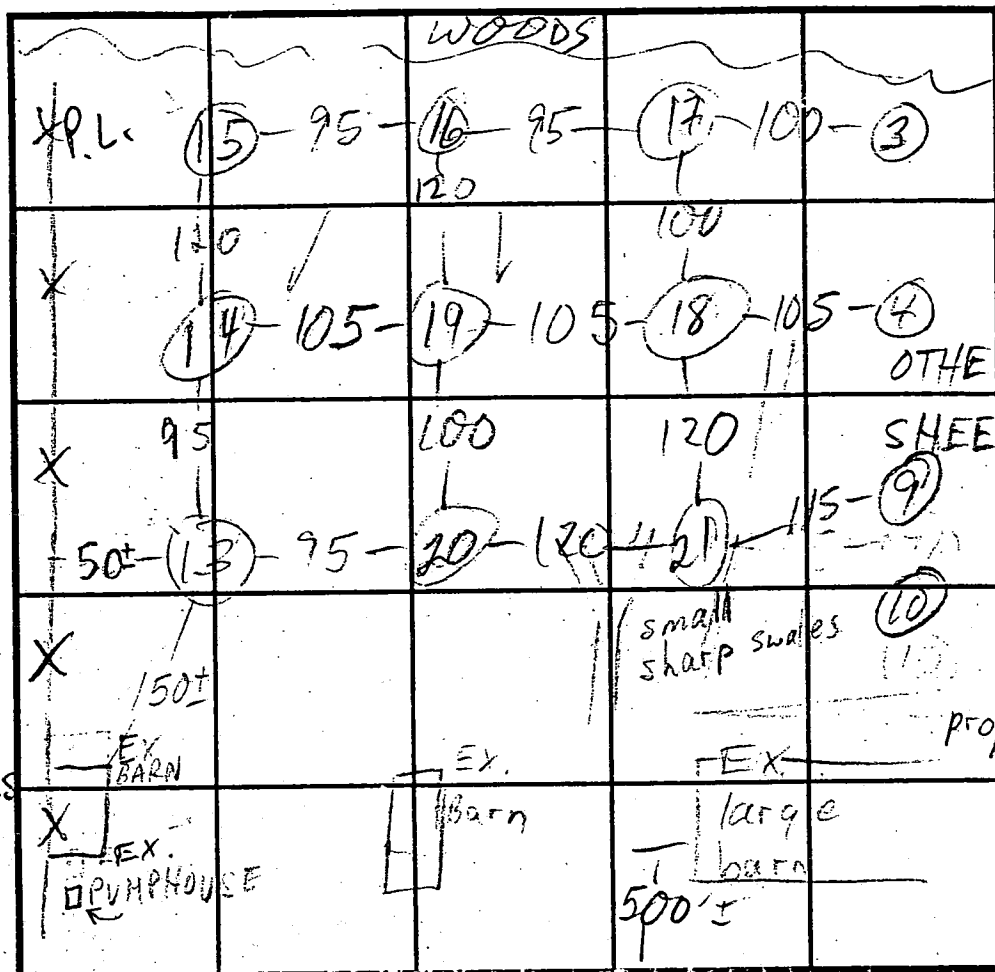 WOODS
P.L. 15 - 95 - 16 - 95 - 17 - 100 - 3
120
120 100
14 - 105 - 19 - 105 - 18 - 105 - 4
OTHE
95 100 120 SHEE
9
50± - 13 - 95 - 20 - 120 - 21 - 115 -
10
small
sharp swales
150±
prop
EX. BARN EX. Barn EX. large barn
EX. PUMPHOUSE
500'±